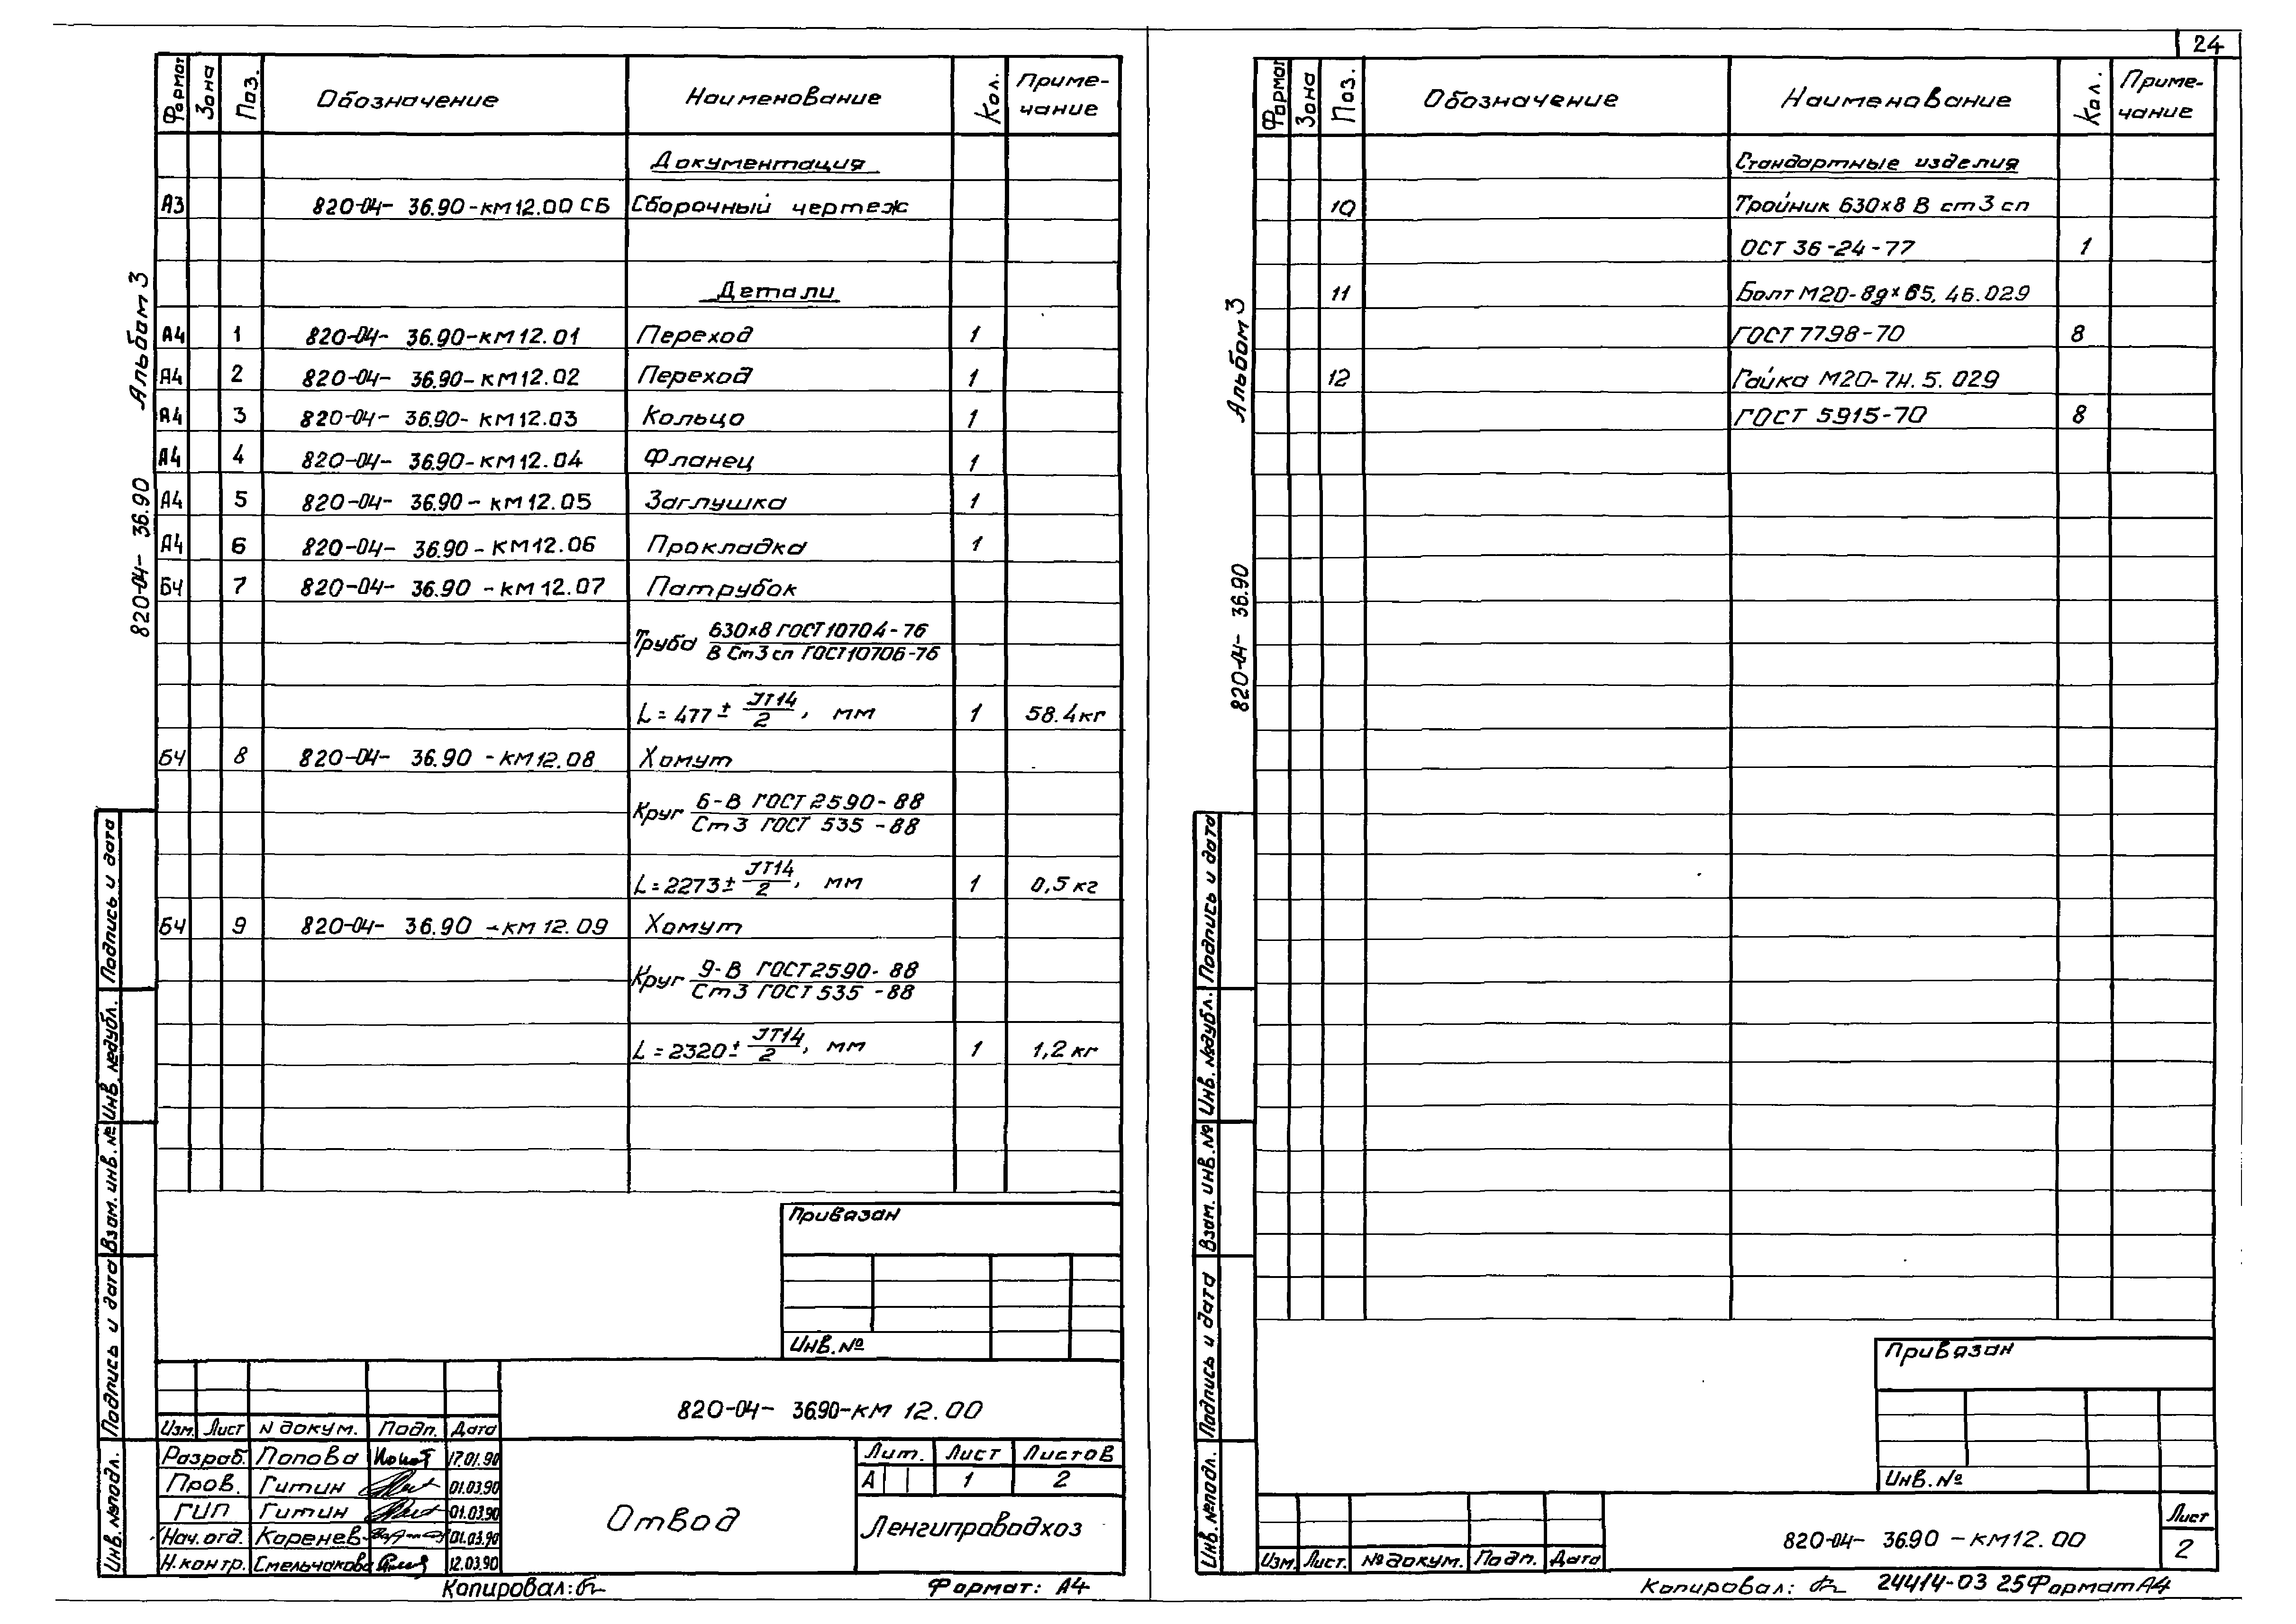 24
Формат Зона Поз. Обозначение Наименование Кол. Приме-
чание
Документация
А3 820-04- 36.90-КМ12.00 СБ Сборочный чертеж
Детали
А4 1 820-04- 36.90-КМ12.01 Переход 1
А4 2 820-04- 36.90-КМ12.02 Переход 1
А4 3 820-04- 36.90-КМ12.03 Кольцо 1
А4 4 820-04- 36.90-КМ12.04 Фланец 1
А4 5 820-04- 36.90-КМ12.05 Заглушка 1
А4 6 820-04- 36.90-КМ12.06 Прокладка 1
БЧ 7 820-04- 36.90-КМ12.07 Патрубок
630х8 ГОСТ 10704-76
Труба
В Ст3 сп ГОСТ 10706-76
L = 477 ± JT14/2, мм 1 58.4кг
БЧ 8 820-04- 36.90-КМ12.08 Хомут
6-В ГОСТ 2590-88
Круг
Ст3 ГОСТ 535-88
L = 2273 ± JT14/2, мм 1 0,5 кг
БЧ 9 820-04- 36.90-КМ12.09 Хомут
9-В ГОСТ 2590-88
Круг
Ст3 ГОСТ 535-88
L = 2320 ± JT14/2, мм 1 1,2 кг
820-04- 36.90 Альбом 3
Подпись и дата
Инв. № дубл.
Взам. инв. №
Подпись и дата
Инв. № подл.
Привязан
Инв. №
820-04- 36.90-КМ 12.00
Изм. Лист N докум. Подп. Дата
Разраб. Попова 17.01.90
Пров. Гитин 01.03.90
ГИП Гитин 01.03.90
Нач. отд. Коренев 01.03.90
Н.контр. Смельчакова 12.03.90
Отвод
Лит. Лист Листов
А 1 2
Ленгипроводхоз
Копировал: Формат: А4
Формат Зона Поз. Обозначение Наименование Кол. Приме-
чание
Стандартные изделия
10 Тройник 630х8 В ст3 сп
ОСТ 36-24-77 1
11 Болт М20-8gх65.46.029
ГОСТ 7798-70 8
12 Гайка М20-7Н.5.029
ГОСТ 5915-70 8
820-04- 36.90 Альбом 3
Подпись и дата
Инв. № дубл.
Взам. инв. №
Подпись и дата
Инв. № подл.
Привязан
Инв. №
Изм. Лист. № докум. Подп. Дата
820-04- 36.90-КМ12.00
Лист
2
Копировал: 24414-03 25 Формат А4